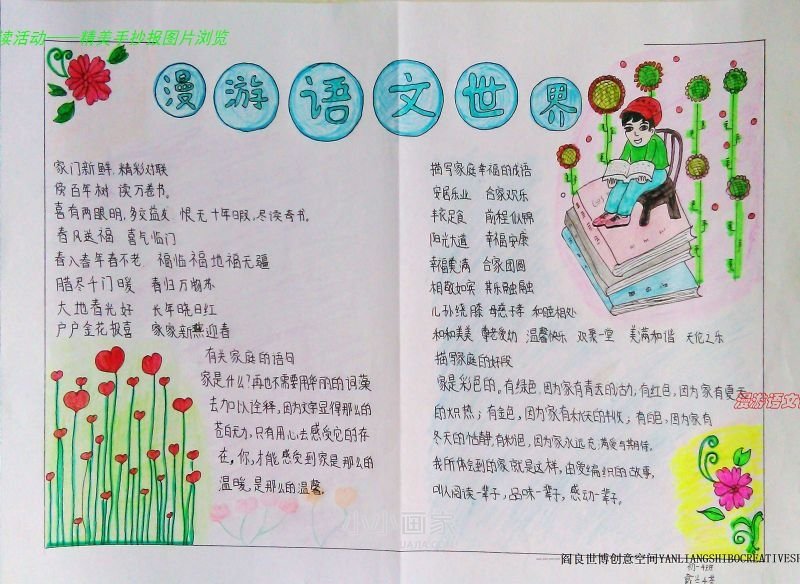 读活动——精美手抄报图片浏览
漫游语文世界
家门新鲜.精彩对联
傍百年树 读万卷书。
喜有两眼明,多交益友 恨无十年暇,尽读奇书。
春风送福 喜气临门
春入春年春不老 福临福地福无疆
腊尽千门暖 春归万物苏
大地春光好 长年晓日红
户户金花报喜 家家新燕迎春
有关家庭的语句
家是什么?再也不需要用华丽的词藻
去加以诠释,因为文字显得那么的
苍白无力,只有用心去感受它的存
在,你,才能感受到家是那么的
温暖,是那么的温馨。
描写家庭幸福的成语
安居乐业 合家欢乐
丰衣足食 前程似锦
阳光大道 幸福安康
幸福美满 合家团圆
相敬如宾 其乐融融
儿孙绕膝 母慈子孝 和睦相处
和和美美 尊老爱幼 温馨快乐 欢聚一堂 美满和谐 天伦之乐
描写家庭的好段
家是彩色的。有绿色,因为家有春天的活力,有红色,因为家有夏天
的炽热;有金色,因为家有秋天的丰收;有白色,因为家有
冬天的恬静,有粉色,因为家永远充满爱与期待。
我所体会到的家就是这样,由爱编织的故事,
可以阅读一辈子,品味一辈子,感动一辈子。
漫游语文
小小画家
——阎良世博创意空间YANLIANGSHIBOCREATIVESP